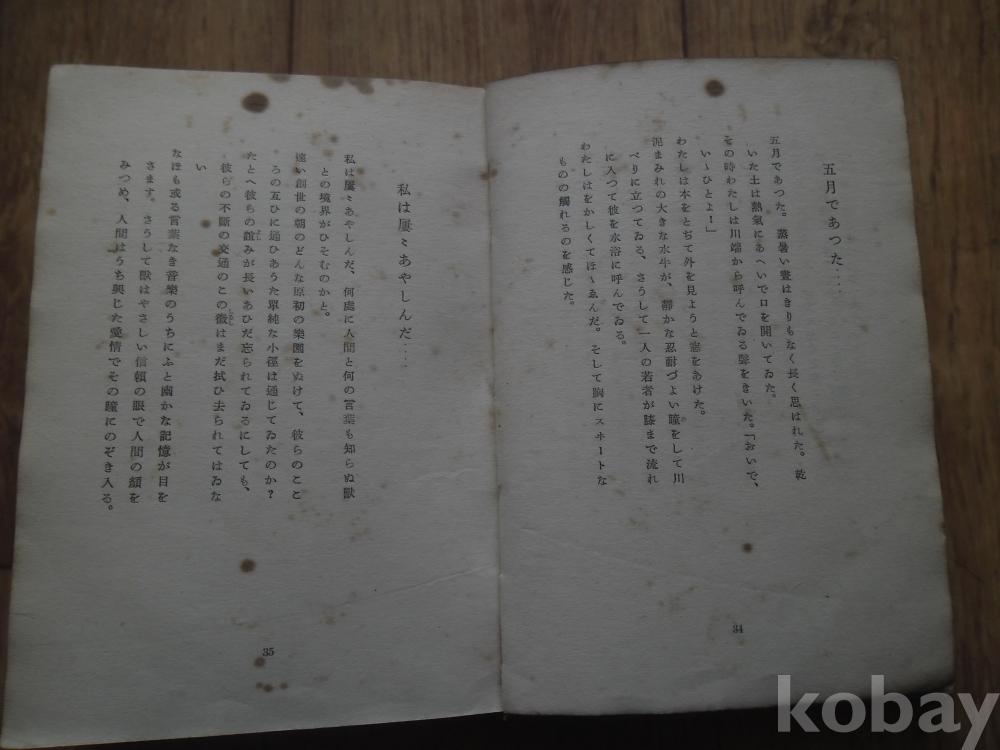 五月であつた‥‥
五月であつた。蒸暑い晝はきりもなく長く思はれた。乾
いた土は熱氣にあへいで口を開いてゐた。
その時わたしは川端から呼んでゐる聲をきいた。「おいで、
い〜ひとよ!」
わたしは本をとぢて外を見ようと窓をあけた。
泥まみれの大きな水牛が、靜かな忍耐づよい瞳をして川
べりに立つてゐる、さうして一人の若者が膝まで流れ
に入つて彼を水浴に呼んでゐる。
わたしはをかしくてほゝゑんだ。そして胸にスヰートな
ものの觸れるのを感じた。
34
私は屢〻あやしんだ‥‥
私は屢〻あやしんだ、何處に人間と何の言葉も知らぬ獸
との境界がひそむのかと。
遠い創世の朝のどんな原初の樂園をぬけて、彼らのここ
ろの互ひに通ひあうた單純な小徑は通じてゐたのか?
たとへ彼らの誼みが長いあひだ忘られてゐるにしても、
彼らの不斷の交通のこの徵はまだ拭ひ去られてはゐな
い
なほも或る言葉なき音樂のうちにふと幽かな記憶が目を
さます。さうして獸はやさしい信賴の眼で人間の顏を
みつめ、人間はうち興じた愛情でその瞳にのぞき入る。
35
kobay